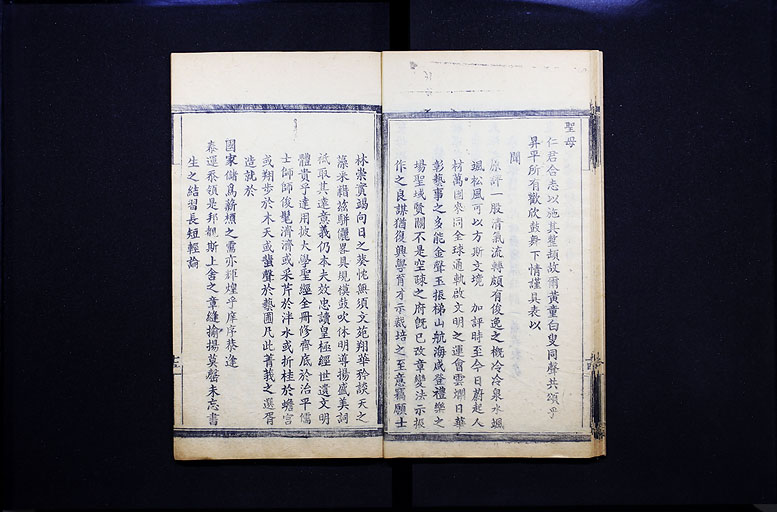 聖母
仁君合志以施其慧故爾黃童白叟同聲共頌乎
昇平所有歡欣鼓舞下情謹具表以
聞
原評一股清氣流轉頗有俊逸之概冷冷泉水颯
颯松風可以方斯文境 加評時至今日蔚起人
材萬國來同全球通軌啟文明之運會雲爛日華
彰藝事之多能金聲玉振梯山航海咸登禮樂之
場聖域賢關不是空疎之府既已改章變法示振
作之良謀猶復興學育才示裁培之至意竊願士
林崇實竭向日之葵忱無須文苑翔華矜談天之
藻采藉茲駢儷畧具規模鼓吹休明導揚盛美詞
祗取其達意義仍本夫效忠讀皇極經世遺文明
體貴乎達用披大學聖經全冊修齊底於治平儒
士師師俊髦濟濟或采芹於泮水或折桂於蟾宮
或翔步於木天或蜚聲於藝圃凡此菁莪之選胥
造就於
國家儲爲薪槱之需亦輝煌乎庠序恭逢
泰運忝領是邦覩斯上舍之章縫揄揚莫罄未忘書
生之結習長短輕論